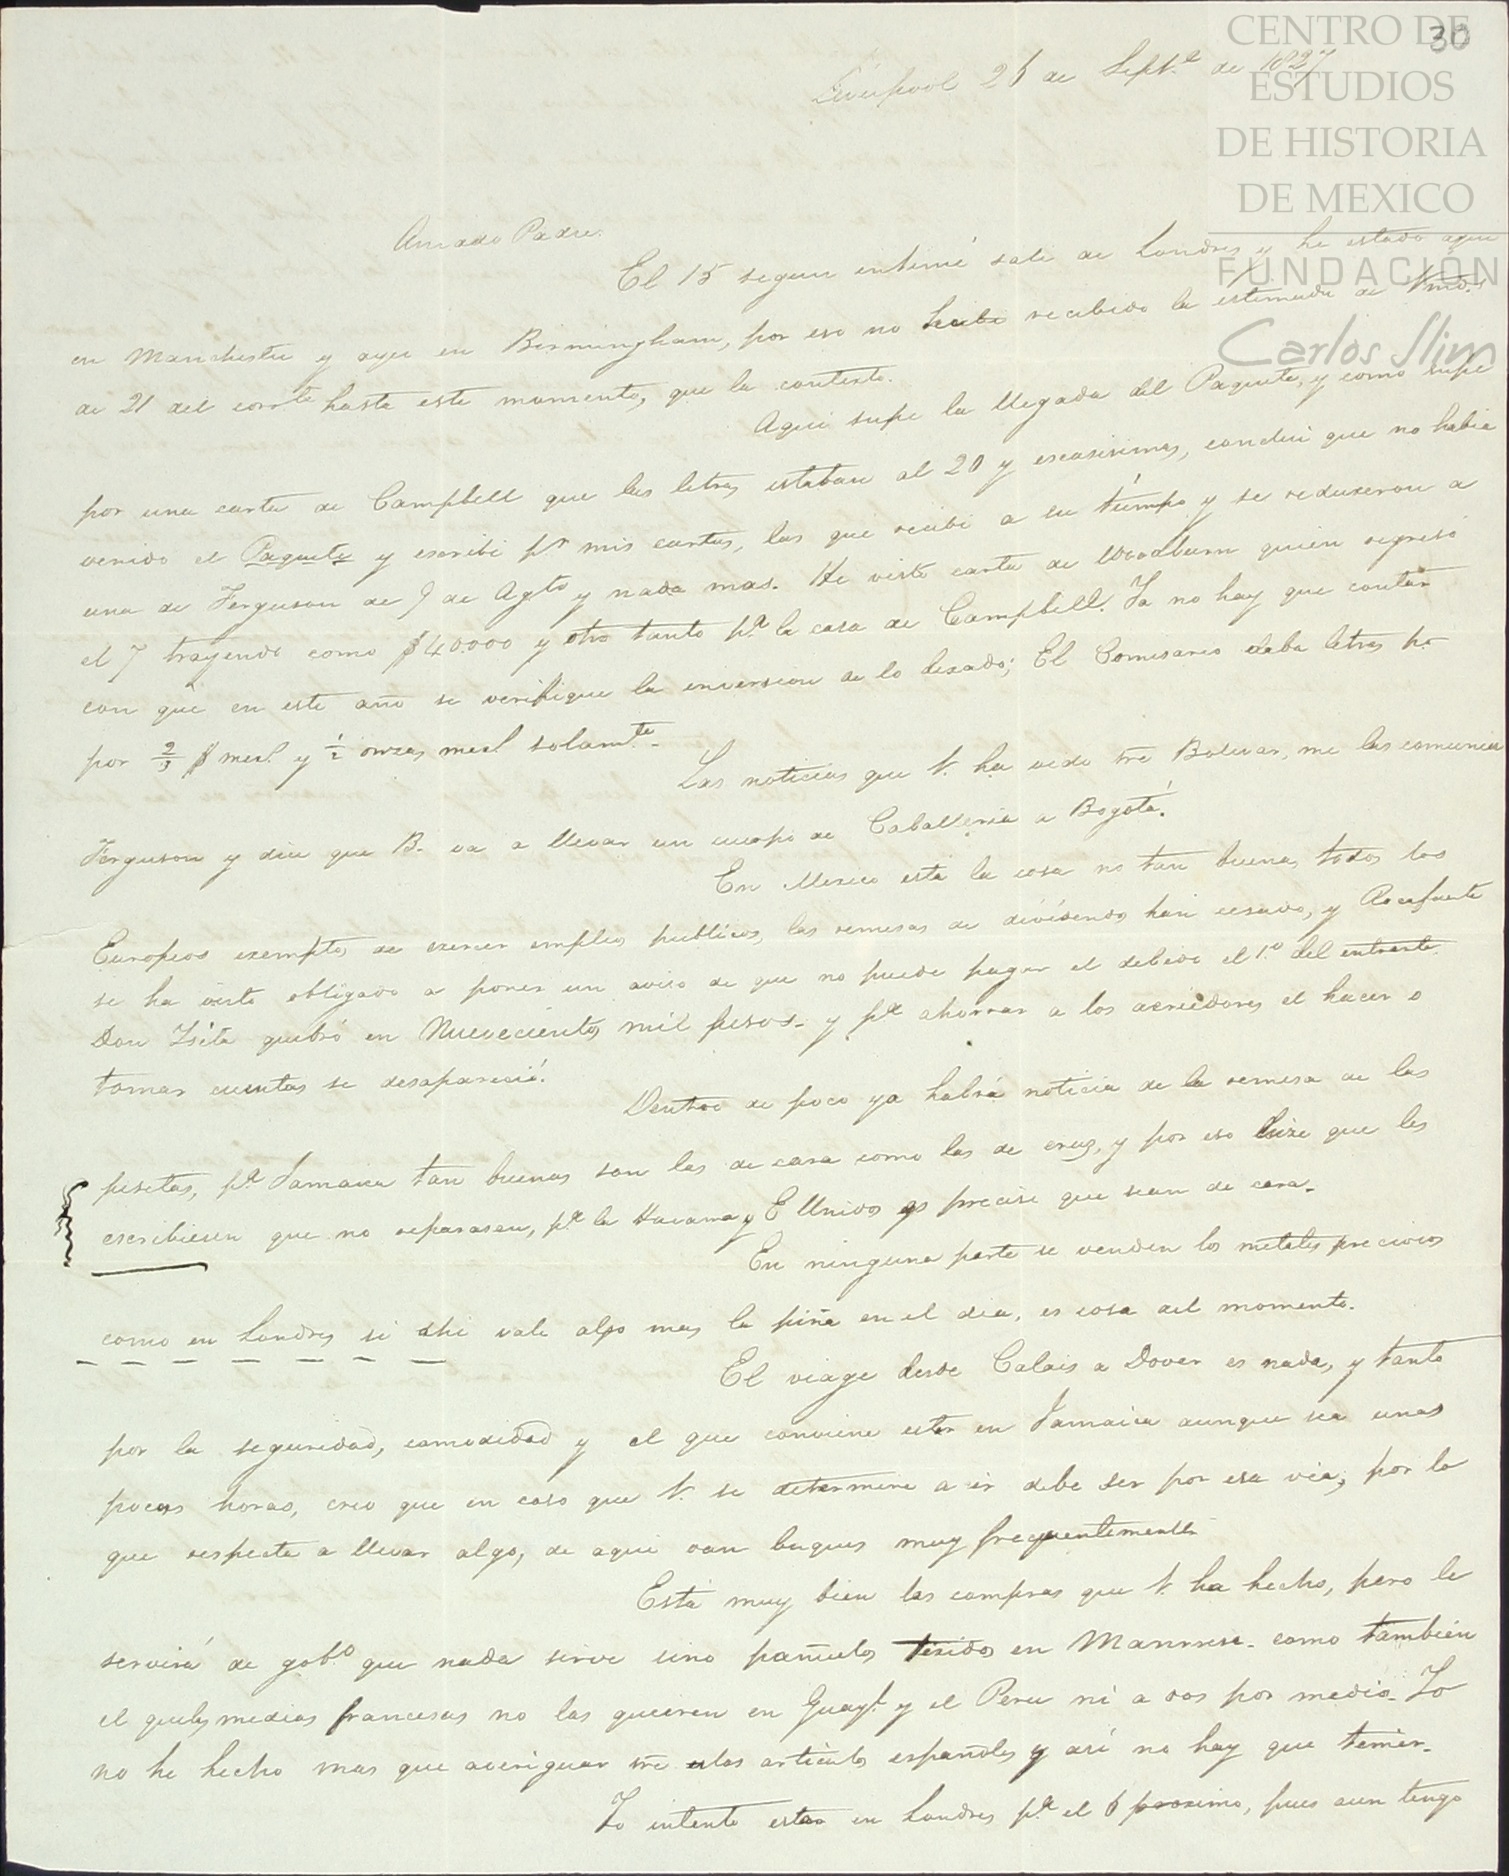 CENTRO DE
ESTUDIOS
DE HISTORIA
DE MEXICO
FUNDACIÓN
Carlos Slim
30
Liverpool 26 de Sept.e de 1827
Amado Padre.
El 15 segun intimé sali de Londres y he estado aqui
en Manchester y ayer en Birmingham, por eso no recibido la estimada de Vmd.s
de 21 del corr.te hasta este momento, que la contesto.
Aqui supe la llegada del Paquete, y como supe
por una carta de Campbell que las letras estaban al 20 y escasisimas, conclui que no habia
venido el Paquete y escribi p.r mis cartas, las que recibi a su tiempo y se reduxeron a
una de Ferguson de 9 de Agto y nada mas. He visto carta de Woodburn quien regresó
el 7 trayendo como $40.000 y otro tanto p.a la casa de Campbell. Ya no hay que contar
con que en este año se verifique la inversion de lo dexado; El Comisario daba letras p.r
por 2/3 $ mex.l y 1/2 onzas mexl solam.te.
Las noticias que V. ha oido sre Bolivar, me las comunica
Ferguson y dice que B. va a llevar un cuerpo de Caballeria a Bogotá.
En Mexico está la cosa no tan buena, todos los
Europeos exemptos de exercer empleos publicos, las remesas de dividendos han cesado, y Rocafuerte
se ha visto obligado a poner un aviso de que no puede pagar el debido el 1.o del entrante.
Don quebró en Nuevecientos mil pesos. y p.a ahorrar a los acreedores el hacer o
tomar cuentas se desapareció.
Dentro de poco ya habrá noticia de la remesa de las
pesetas, p.a Jamaica tan buenas son las de cara como las de cruz, y por eso hize que les
escribiesen que no reparasen, p.a la Havana y E Unidos es precise que sean de cara.
En ninguna parte se venden los metales preciosos
como en Londres si ahi vale algo mas la piña en el dia, es cosa del momento.
El viage desde Calais a Dover es nada, y tanto
por la seguridad, comodidad y el que conviene estar en Jamaica aunque sea unas
pocas horas, creo que en caso que V. se determine a ir debe ser por esa via; por lo
que respecta a llevar algo, de aqui van buques muy frequentemente.
Está muy bien las compras que V. ha hecho, pero le
servirá de gob.o que nada sirve sino pañuelos texidos en Manresa. como tambien
el que las medias francesas no las quieren en Guayl. y el Peru ni a dos por medio. Yo
no he hecho mas que averiguar sre los articulos españoles y asi no hay que temer.
Yo intento estar en Londres p.a el 6 proximo, pues aun tengo